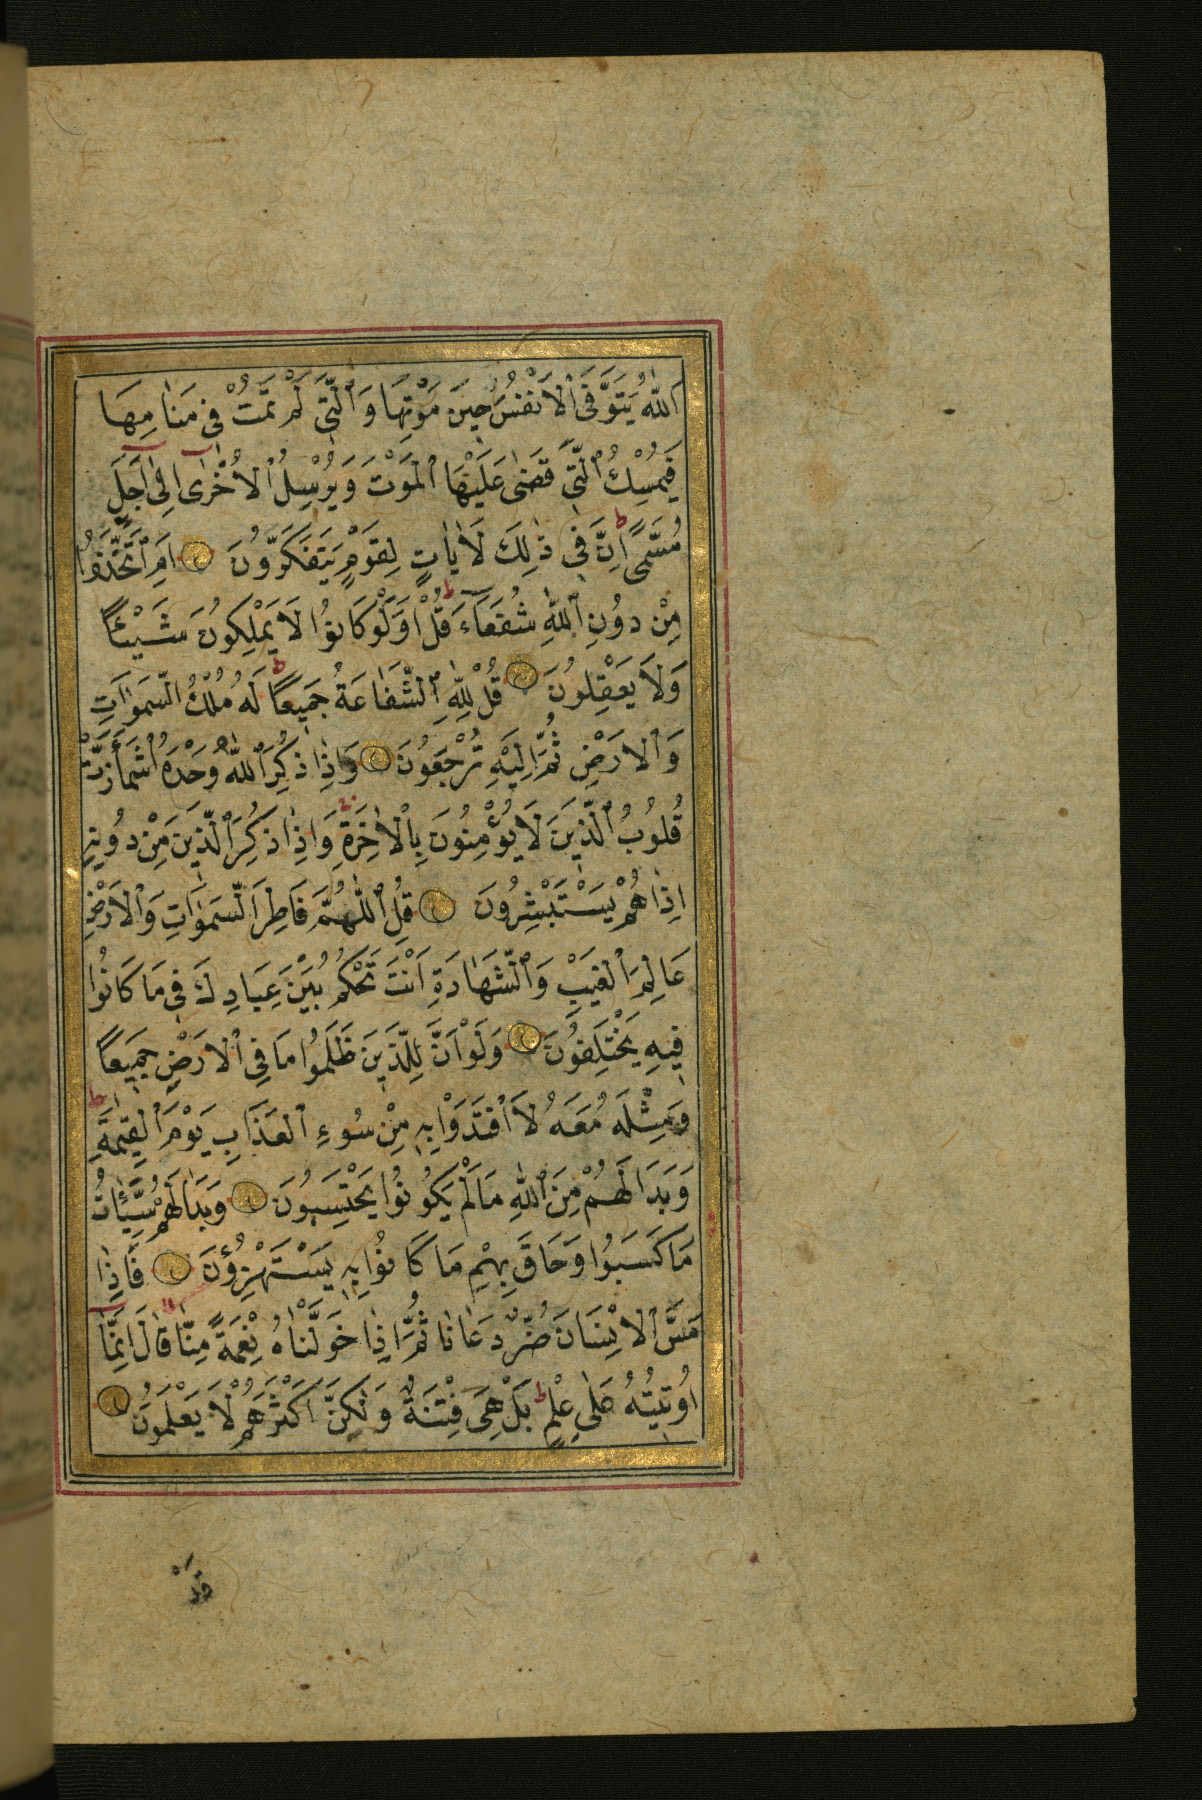 اَللّٰهُ يَتَوَفَّى ٱلْاَنْفُسَ حِينَ مَوْتِهَا وَٱلَّتِى لَمْ تَمُتْ فِى مَنَامِهَا
فَيُمْسِكُ ٱلَّتِى قَضٰى عَلَيْهَا ٱلْمَوْتَ وَيُرْسِلُ ٱلْاُخْرٰى اِلٰى اَجَلٍ
مُسَمًّى ط اِنَّ فِى ذٰلِكَ لَاٰيَاتٍ لِقَوْمٍ يَتَفَكَّرُونَ اَمِ ٱتَّخَذُوا
مِنْ دُونِ ٱللّٰهِ شُفَعَآءَ ط قُلْ اَوَلَوْ كَانُوا لَا يَمْلِكُونَ شَيْئًا
وَلَا يَعْقِلُونَ قُلْ لِلّٰهِ ٱلشَّفَاعَةُ جَمِيعًا ط لَهُ مُلْكُ السَّمٰوَاتِ
وَٱلْاَرْضِ ثُمَّ اِلَيْهِ تُرْجَعُونَ وَاِذَا ذُكِرَ ٱللّٰهُ وَحْدَهُ ٱشْمَأَزَّتْ
قُلُوبُ ٱلَّذِينَ لَا يُؤْمِنُونَ بِٱلْاٰخِرَةِ وَاِذَا ذُكِرَ ٱلَّذِينَ مِنْ دُونِهِ
اِذَا هُمْ يَسْتَبْشِرُونَ قُلِ ٱللّٰهُمَّ فَاطِرَ ٱلسَّمٰوَاتِ وَٱلْاَرْضِ
عَالِمَ ٱلْغَيْبِ وَٱلشَّهَادَةِ اَنْتَ تَحْكُمُ بَيْنَ عِبَادِكَ فِى مَا كَانُوا
فِيهِ يَخْتَلِفُونَ وَلَوْ اَنَّ لِلَّذِينَ ظَلَمُوا مَا فِى ٱلْاَرْضِ جَمِيعًا
وَمِثْلَهُ مَعَهُ لَاَفْتَدَوْا بِهِ مِنْ سُوءِ ٱلْعَذَابِ يَوْمَ ٱلْقِيٰمَةِ ط
وَبَدَا لَهُمْ مِنَ ٱللّٰهِ مَا لَمْ يَكُونُوا يَحْتَسِبُونَ وَبَدَا لَهُمْ سَيِّئَاتُ
مَا كَسَبُوا وَحَاقَ بِهِمْ مَا كَانُوا بِهِ يَسْتَهْزِؤُنَ فَاِذَا
مَسَّ ٱلْاِنْسَانَ ضُرٌّ دَعَانَا ثُمَّ اِذَا خَوَّلْنَاهُ نِعْمَةً مِنَّا قَالَ اِنَّمَا
اُوتِيتُهُ عَلٰى عِلْمٍ ط بَلْ هِىَ فِتْنَةٌ وَلٰكِنَّ اَكْثَرَهُمْ لَا يَعْلَمُونَ
قَدْ